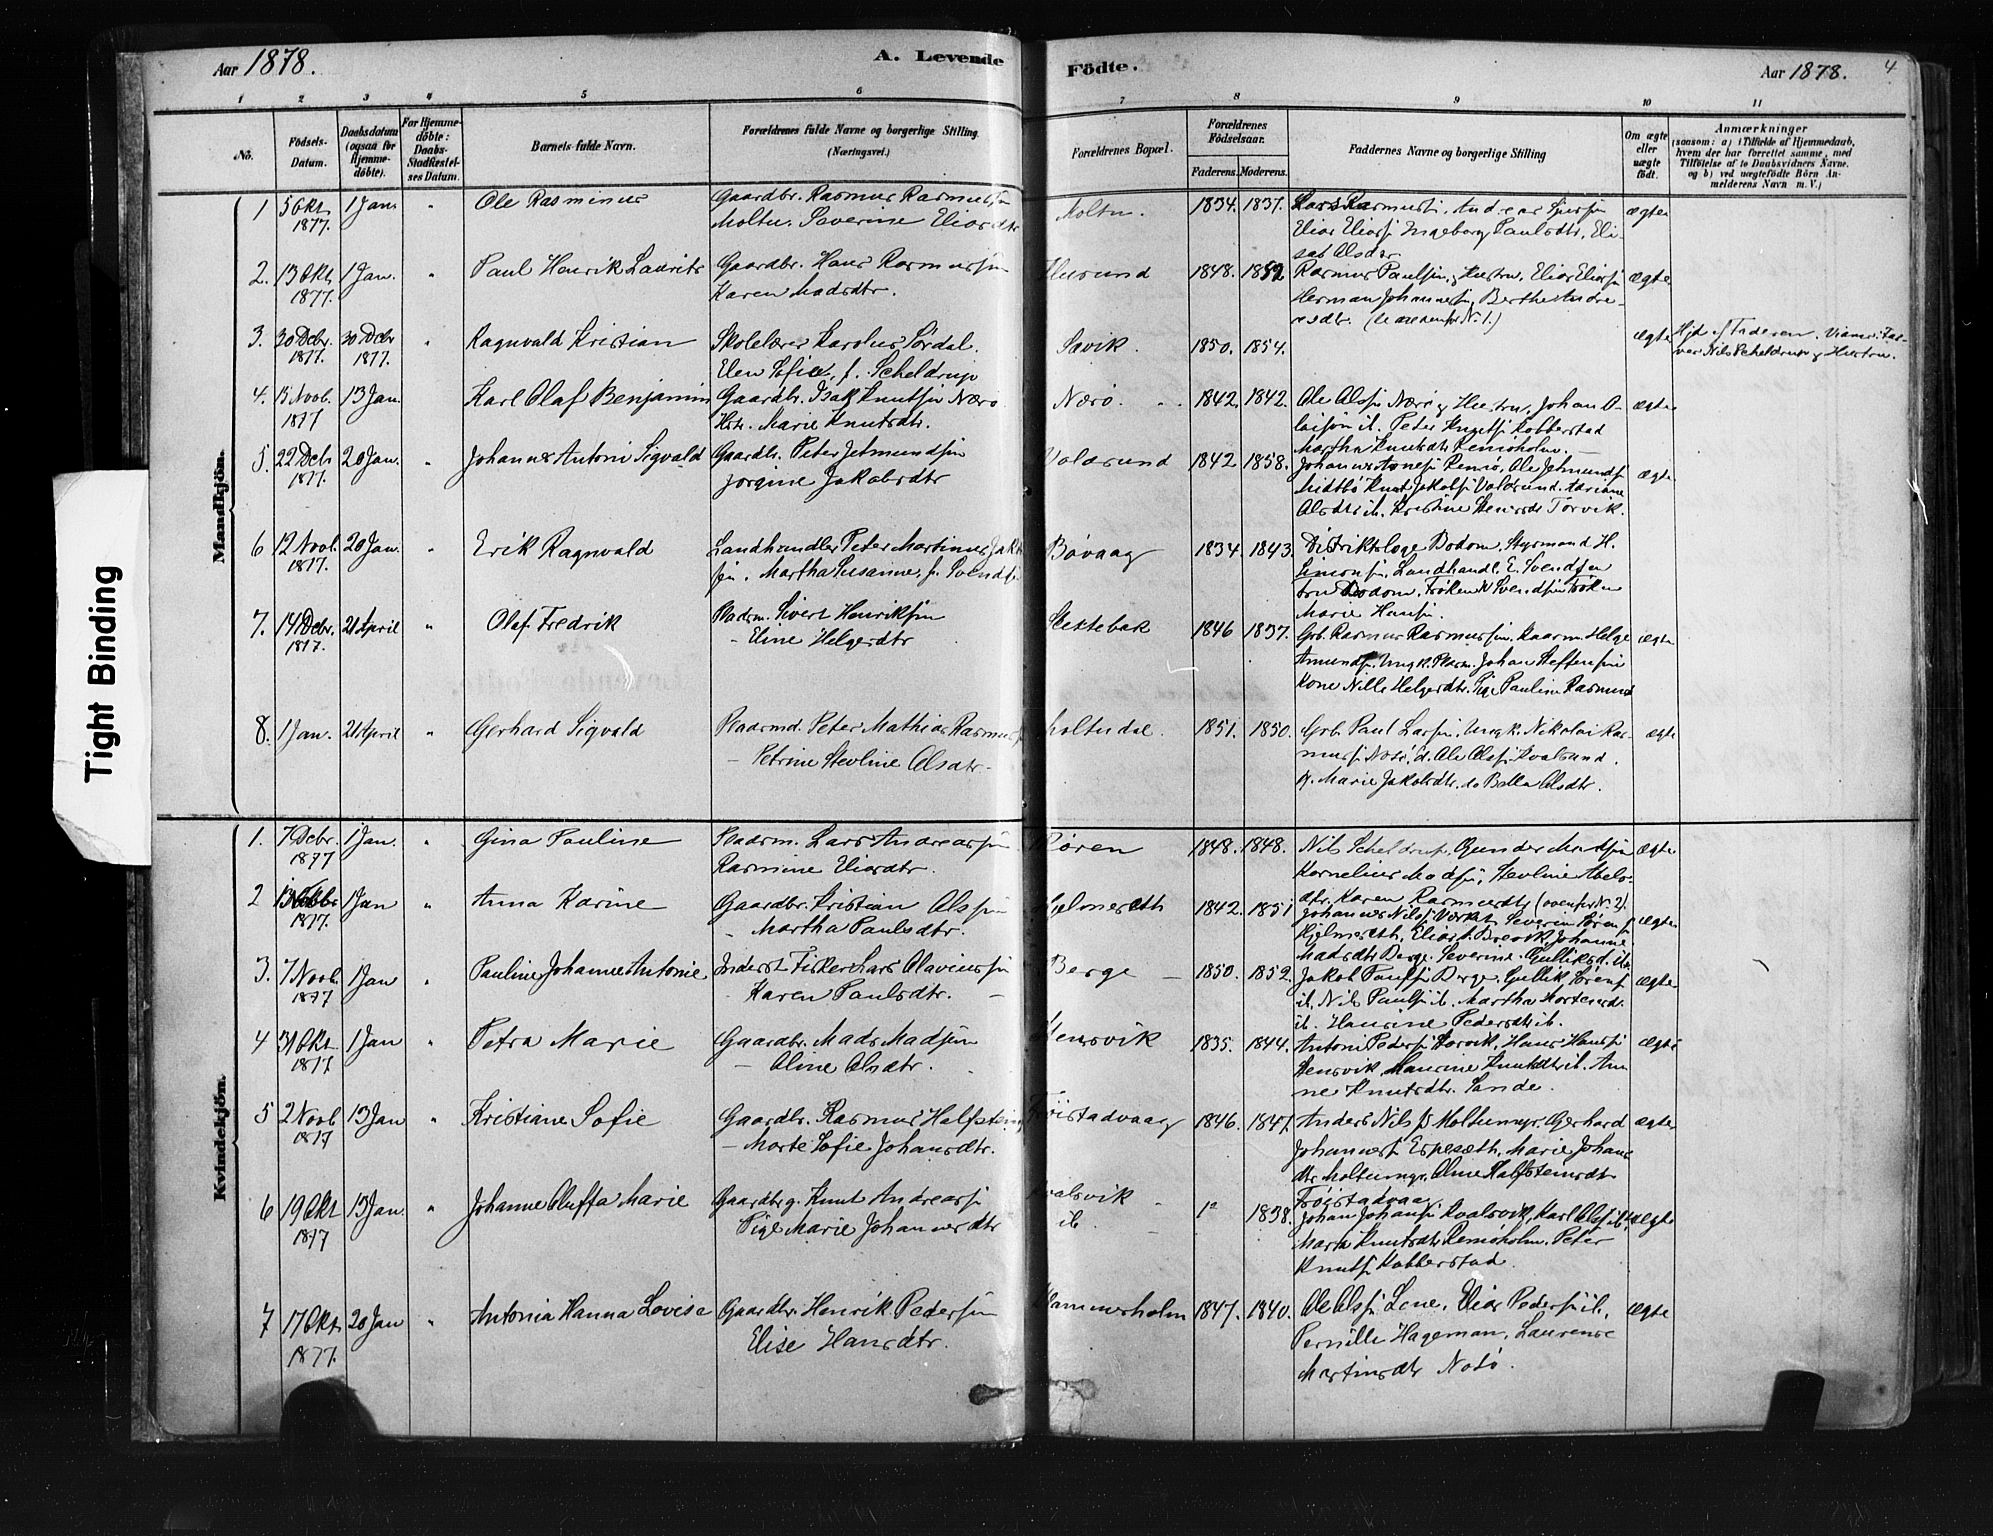 Aar 1878.
A. Levende
Födte.
Aar 1878.
4
1 2 3 4 5 6 7 8 9 10 11
No.
Födsels-
Datum.
Daabsdatum
(ogsaa for
Hjemme-
döbte).
For Hjemme-
döbte:
Daabs-
Stadfæstel-
ses Datum.
Barnets fulde Navn.
Forældrenes fulde Navne og borgerlige Stilling.
(Næringsvei.)
Forældrenes Bopæl.
Forældrenes
Födselsaar.
Faderens. Moderens.
Faddernes Navne og borgerlige Stilling
Om ægte
eller
uægte
födt.
Anmærkninger
(saasom: a) i Tilfælde af Hjemmedaab,
hvem der har forrettet samme, med
Tilföielse af to Daabsvidners Navne,
og b) ved uægtefödte Börn An-
melderens Navn m. V.)
Tight Binding
Mandkjön.
1 5 Okt. 1877. 1 Jan. " Ole Rasminus
Gaardbr. Rasmus Rasmussen
Moltu. Severine Eliasdtr
Moltu. 1834. 1837.
Lars Rasmuss.
Elias Eliass. Ingeborg Paulsdtr, Eli-
sab. Olsdtr
ægte
2. 13 Okt. 1877. 1 Jan. " Paul Henrik Laurits
Gaardbr. Hans Rasmussen
Karen Madsdtr.
1848. 1852
Rasmus Paulsen, g Hustru, Elias Eliass.
Herman Johannes Berthe Andre-
esdtr.
ægte
3. 30 Decbr. 1877. 30 Decbr 1877. " Ragnvald Kristian
Skolelærer Karolus Sördal.
Elen Sofie, f. Scheldrup
Savik. 1850. 1854. ægte
Hjd af Faderen.
Nils Scheldrup g Hustru.
4. 15 Novb. 1877 13 Jan. Karl Olaf Benjamin
Gaardbr. Isak Knutsen Nærö
Hstr. Marie Knutsdtr.
Nærö. 1842. 1842.
Ole Olss. Nærö g Hustru, Johan O-
laisön ib. Peter Knuts. Kobberstad
Martha Knutsdtr Remöholm.
ægte
5. 22 Dcb. 1877. 20 Jan. " Johannes Antoni Sigvald
Gaardbr. Peter Jetmundsen
Jorgine Jakobsdtr
Voldsund 1842 1858.
Remö, Ole Jetmunds.
Midtbö Knut Jakobs. Voldsund.
Olsdtr ib. Kristine Torvik.
ægte
6 12 Novb. 1877. 20 Jan. " Erik Ragnvald
Landhandler Peter Martinus Jakob-
sen. Martha Susanne, f. Svendsen
Bövaag 1834. 1843.
Distriktslæge Bodom, Styrmand H.
Simonsen, Landhandl. E. Svendsen
Fru Bodom, Fröken K Svendsen Fröken
Marie Hansen
7. 14 Decbr. 1877. 21 April " Olaf Fredrik
Pladsm. Sivert Henriksen
- Eline Helgesdtr
1846 1837.
Grb. Rasmus Rasmussen, Kaarm. Helge
Amunds. Ungk. Pladsm. Johan Steffensen
Kone Nille Helgesdtr. Pige Pauline Rasmusd
ægte
8. 1 Jan. 21 April " Gerhard Sigvald
Plaadsmd. Peter Mathias Rasmuss
- Petrine Stevline Olsdtr -
Moltudal. 1851. 1850.
Grb. Paul Larsen, Ungk. Nikolai Ras-
mus. do. Ole Olss. Kvalsund.
K. Marie Jakobsdtr. do Bella Olsdtr.
ægte
Kvindekjön.
1. 7 Decbr. 1877 1 Jan " Gina Pauline
Pladsm. Lars Andreassen
Rasmine Eliasdtr.
Rören 1848. 1848.
Nils Scheldrup, Gunder Madsen
Kornelius Mads., Stevline Abels-
dtr. Karen Rasmusdtr (ovenfor N. 2).
ægte
2 1877. 1 Jan " Anna Karine
Gaardbr. Kristian Olssen
- Martha Paulsdtr.
Hjelmeseth 1842. 1851
Johannes Nilss. Severin Sörens.
Hjelmeseth, Elias Brevik, Johanne
Madsdtr Berge. Severine Gulliksd. ib
ægte
3. 7 Novb. 1877 1 Jan " Pauline Johanne Antonie
Inderst Fisker Lars Olaviussen
Karen Paulsdtr. -
Berge - 1850. 1852.
Jakob Pauls. Berge Gullik Sörens.
ib. Nils Pauls. ib. Martha Mortensdtr
ib. Hansine Pedersdtr ib.
ægte
4 31 Okt. 1877 1 Jan " Petra Marie
Gaardbr. Mads Madsen
- Oline Olsdtr.
1835. 1844.
Antoni Peders. Hans Hanss.
Maurine Knutsdtr ib. An-
ne Knutsdtr. Sande.
ægte
5 2 Novb 1877 13 Jan " Kristiane Sofie
Gaardbr. Rasmus Halfsteins.
- Marte Sofie Johansdtr.
Fröistadvaag 1846. 1847.
Anders Nils s Moltumyr. Gerhard
Johannes. Espesæth, Marie Johans
dtr. Moltumyr. Oline Halfsteinsdtr
Fröistadvaag
ægte
6 19 Okt 1877 13 Jan. " Johanne Oluffa Marie
Gaardbrg. Knut Andreass.
Pige Marie Johannesdtr
Kvalsvik
ib. - 1838.
Johan Johans. Kvalsvik, Karl Olss. ib.
Maria Knutsdtr Remöholm. Peter
Knuts. Kobberstad.
uægte
7 17 Okt. 1877. 20 Jan " Antonia Hanna Lovise
Gaardbr. Henrik Pedersen
Elise Hansdtr.
1847. 1840.
Ole Olss. Lene, Elias Peders. ib.
Pernille Hageman, Laurense
Martinsdtr
ægte